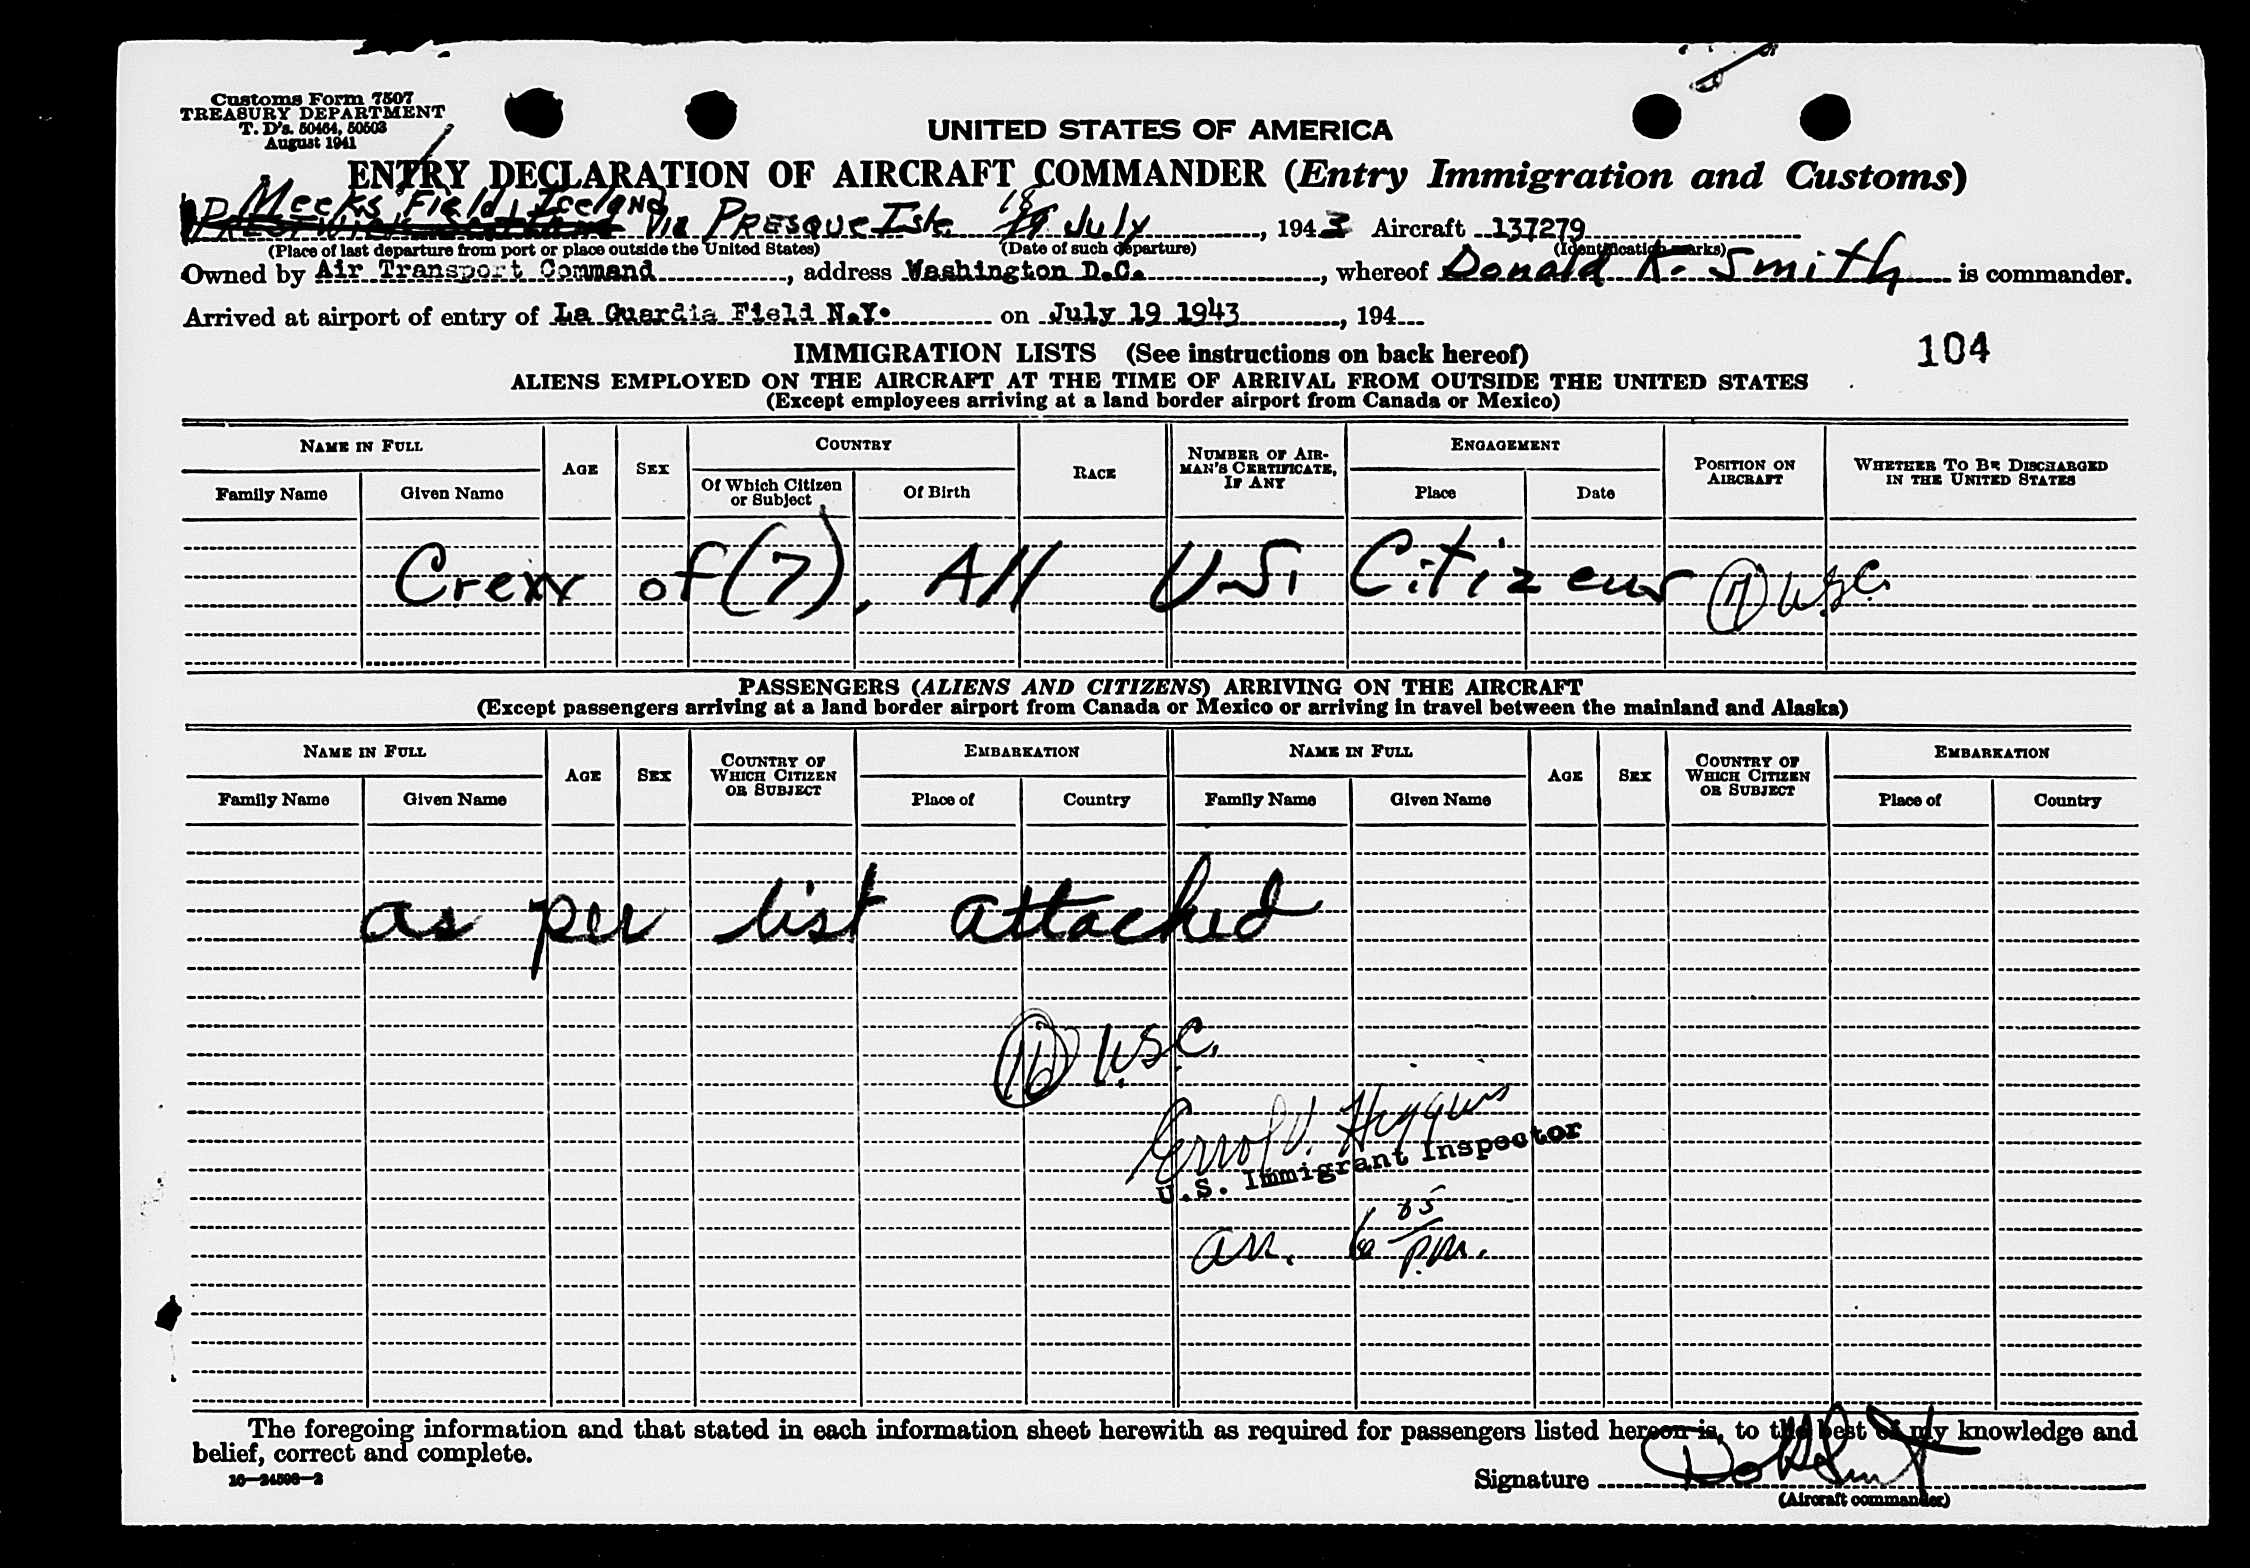 Customs Form 7507
TREASURY DEPARTMENT
T. D's. 50464, 50503
August 1941
UNITED STATES OF AMERICA
ENTRY DECLARATION OF AIRCRAFT COMMANDER (Entry Immigration and Customs)
Meeks Field, Iceland
Via PRESQUE Isle 18 July, 1943 Aircraft 137279
(Place of last departure from port or place outside the United States) (Date of such departure) (Identification marks)
Owned by Air Transport Command, address Washington D.C., whereof Donald K. Smith is commander.
Arrived at airport of entry of La Guardia Field N.Y. on July 19 1943, 194
104
IMMIGRATION LISTS (See instructions on back hereof)
ALIENS EMPLOYED ON THE AIRCRAFT AT THE TIME OF ARRIVAL FROM OUTSIDE THE UNITED STATES
(Except employees arriving at a land border airport from Canada or Mexico)
NAME IN FULL
Family Name
Given Name
AGE
SEX
COUNTRY
Of Which Citizen or Subject
Of Birth
RACE
NUMBER OF AIRMAN'S CERTIFICATE, IF ANY
ENGAGEMENT
Place
Date
POSITION ON AIRCRAFT
WHETHER TO BE DISCHARGED IN THE UNITED STATES
Crew of (7), All U.S. Citizens (7) U.S.C.
PASSENGERS (ALIENS AND CITIZENS) ARRIVING ON THE AIRCRAFT
(Except passengers arriving at a land border airport from Canada or Mexico or arriving in travel between the mainland and Alaska)
NAME IN FULL
Family Name
Given Name
AGE
SEX
COUNTRY OF WHICH CITIZEN OR SUBJECT
EMBARKATION
Place of
Country
NAME IN FULL
Family Name
Given Name
AGE
SEX
COUNTRY OF WHICH CITIZEN OR SUBJECT
EMBARKATION
Place of
Country
as per list attached
(16) U.S.C.
Errol V. Higgins
U.S. Immigrant Inspector
arr. 6 p.m.
The foregoing information and that stated in each information sheet herewith as required for passengers listed hereon is, to the best of my knowledge and
belief, correct and complete.
16—24598-2
Signature
(Aircraft commander)